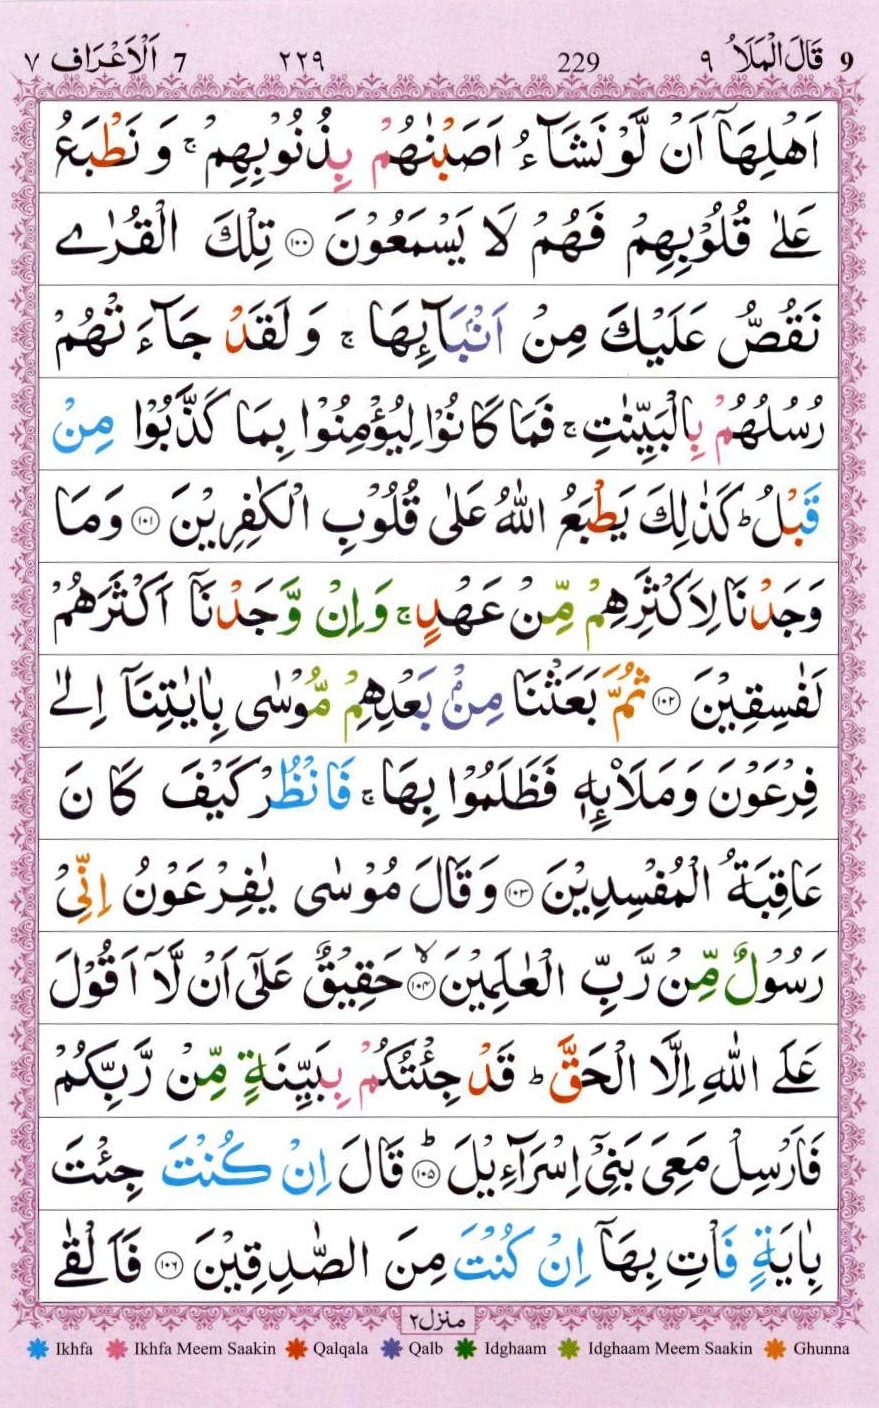 9 قَالَ الْمَلَاُ ٩ 229 ٢٢٩ 7 اَلْاَعْرَاف ٧
اَهْلِهَاۤ اَنْ لَّوْ نَشَآءُ اَصَبْنٰهُمْ بِذُنُوْبِهِمْ ۚ وَ نَطْبَعُ
عَلٰى قُلُوْبِهِمْ فَهُمْ لَا يَسْمَعُوْنَ ﴿١٠٠﴾ تِلْكَ الْقُرٰى
نَقُصُّ عَلَيْكَ مِنْ اَنْۢبَآئِهَا ۚ وَ لَقَدْ جَآءَ تْهُمْ
رُسُلُهُمْ بِالْبَيِّنٰتِ ۚ فَمَا كَانُوْا لِيُؤْمِنُوْا بِمَا كَذَّبُوْا مِنْ
قَبْلُ ؕ كَذٰلِكَ يَطْبَعُ اللّٰهُ عَلٰى قُلُوْبِ الْكٰفِرِيْنَ ﴿١٠١﴾ وَمَا
وَجَدْنَا لِاَكْثَرِهِمْ مِّنْ عَهْدٍ ۚ وَاِنْ وَّجَدْنَاۤ اَكْثَرَهُمْ
لَفٰسِقِيْنَ ﴿١٠٢﴾ ثُمَّ بَعَثْنَا مِنْۢ بَعْدِهِمْ مُّوْسٰى بِاٰيٰتِنَاۤ اِلٰى
فِرْعَوْنَ وَمَلَا۟ئِهٖ فَظَلَمُوْا بِهَا ۚ فَانْظُرْ كَيْفَ كَانَ
عَاقِبَةُ الْمُفْسِدِيْنَ ﴿١٠٣﴾ وَقَالَ مُوْسٰى يٰفِرْعَوْنُ اِنِّىْ
رَسُوْلٌ مِّنْ رَّبِّ الْعٰلَمِيْنَ ۙ﴿١٠٤﴾ حَقِيْقٌ عَلٰۤى اَنْ لَّاۤ اَقُوْلَ
عَلَى اللّٰهِ اِلَّا الْحَقَّ ؕ قَدْ جِئْتُكُمْ بِبَيِّنَةٍ مِّنْ رَّبِّكُمْ
فَاَرْسِلْ مَعِىَ بَنِىْۤ اِسْرَآءِيْلَ ؕ﴿١٠٥﴾ قَالَ اِنْ كُنْتَ جِئْتَ
بِاٰيَةٍ فَاْتِ بِهَاۤ اِنْ كُنْتَ مِنَ الصّٰدِقِيْنَ ﴿١٠٦﴾ فَاَلْقٰى
منزل٢
Ikhfa Ikhfa Meem Saakin Qalqala Qalb Idghaam Idghaam Meem Saakin Ghunna